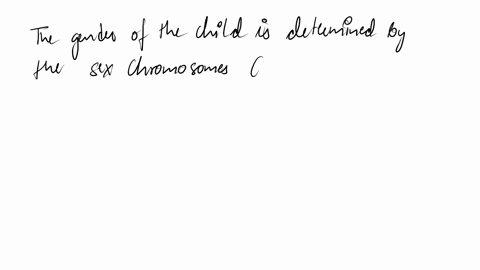 The gender of the child is determined by
the sex chromosomes (